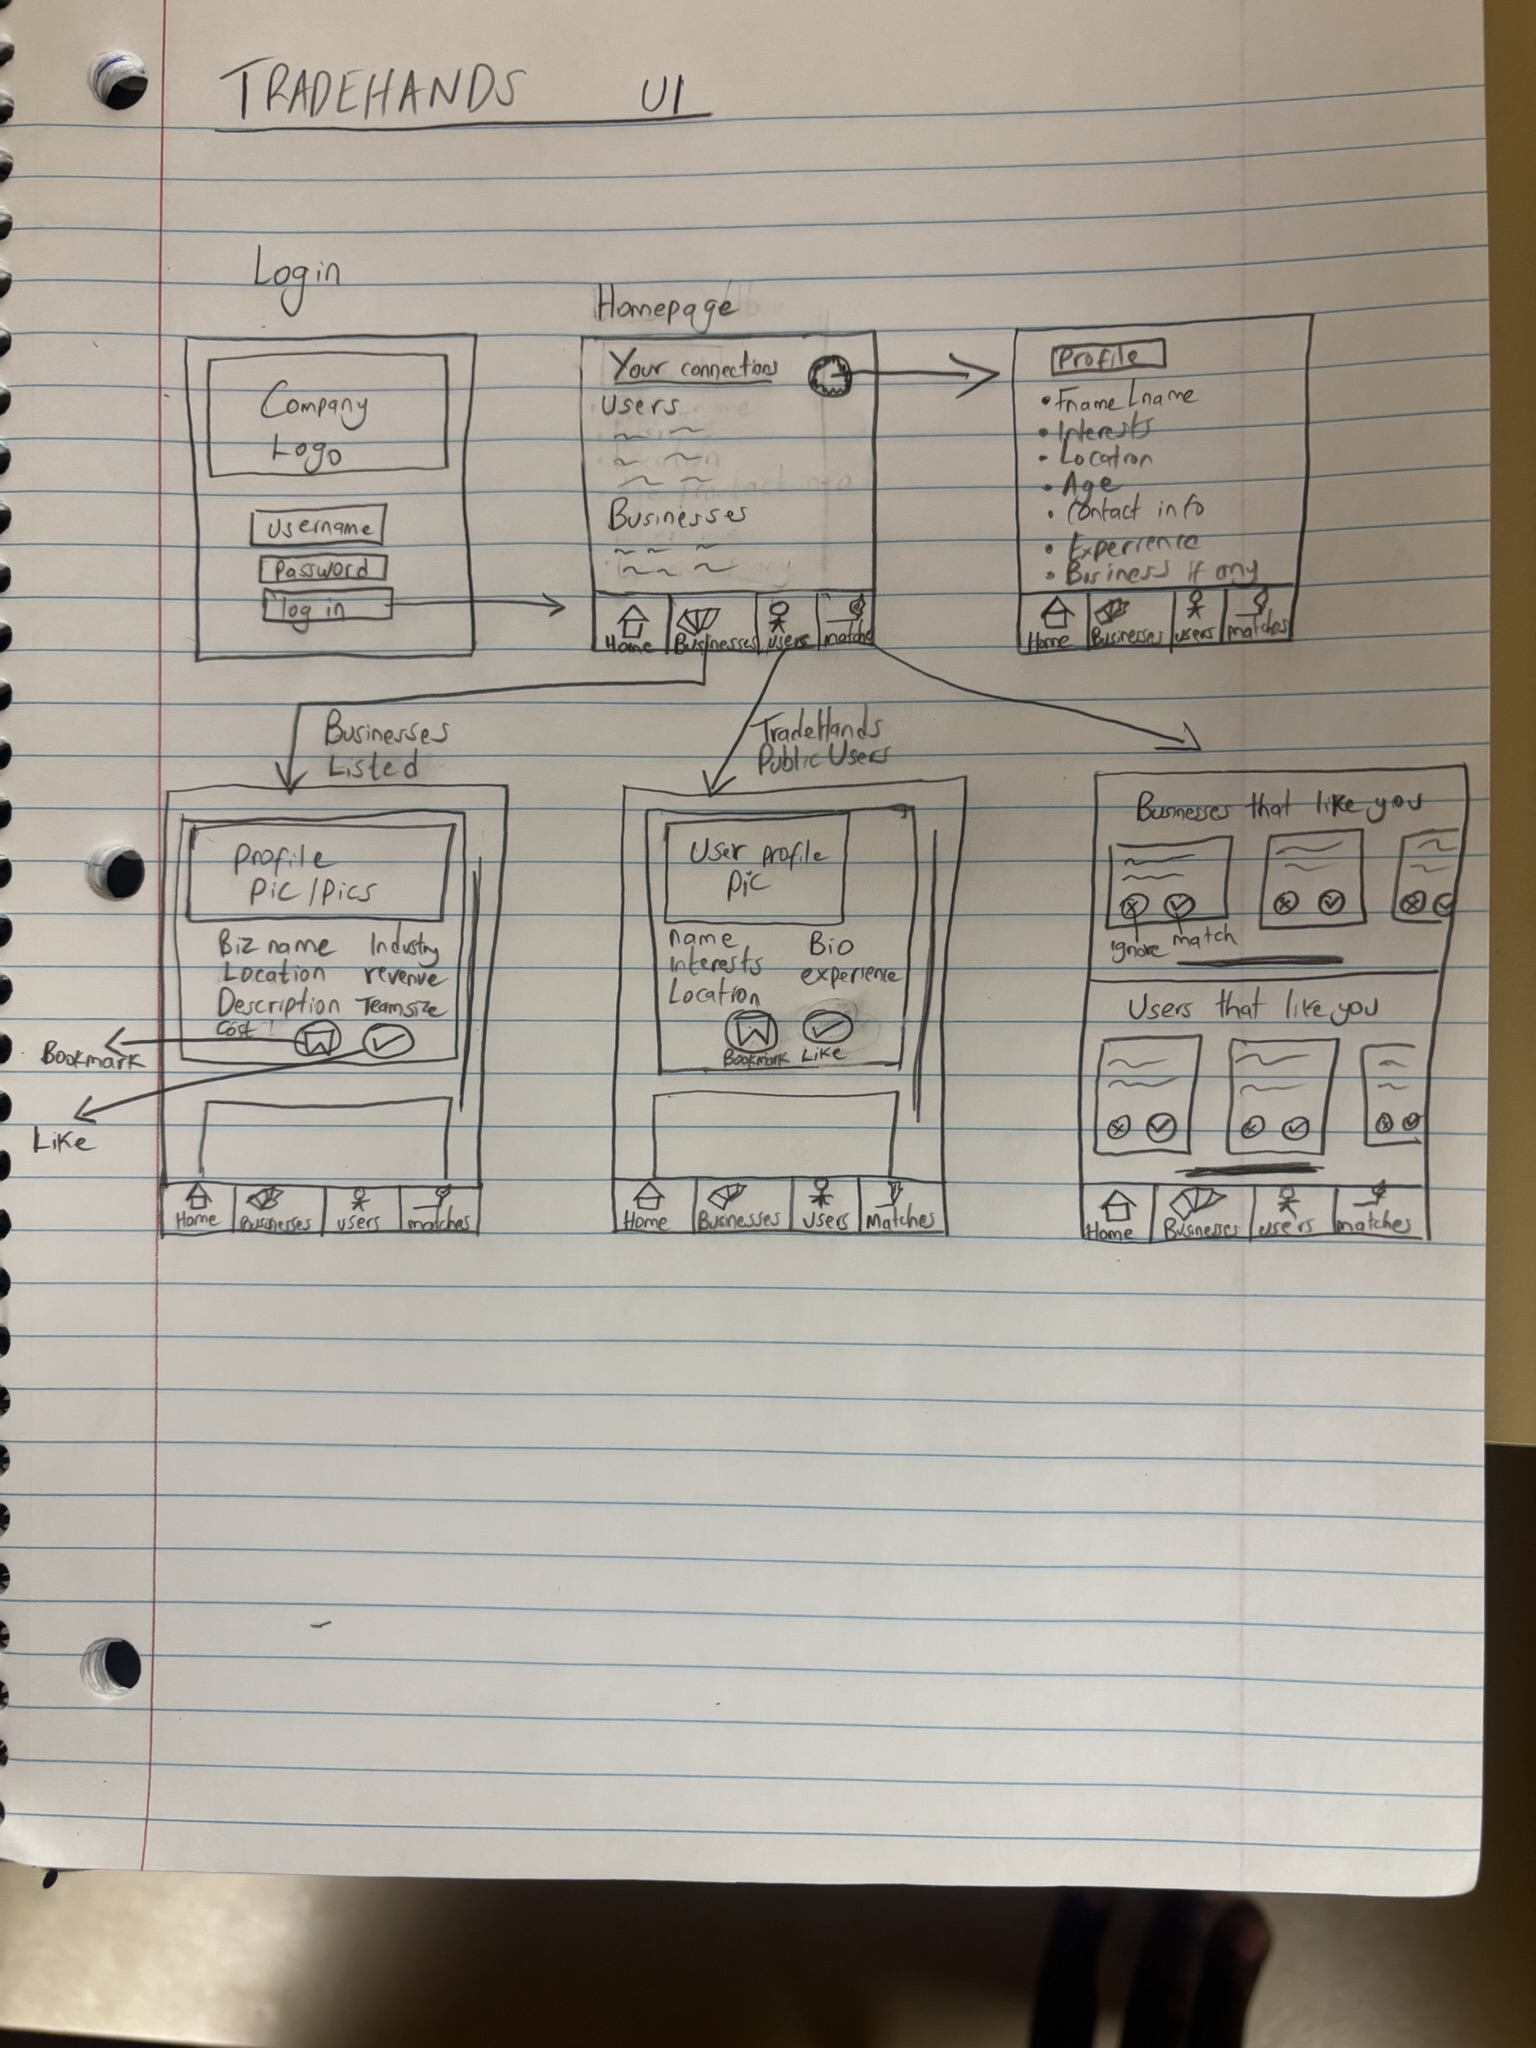 TRADEHANDS UI
Login
Company
Logo
Username
Password
log in
Homepage
Your connections
Users
Businesses
Home Businesses users matche
Profile
• Fname Lname
• Interests
• Location
• Age
• Contact info
• Experience
• Business if any
Home Businesses users matches
Businesses
Listed
Profile
Pic/Pics
Biz name Industry
Location revenue
Description Teamsize
Cost
Bookmark
Like
Home Businesses users matches
TradeHands
Public Users
User profile
pic
name Bio
Interests experience
Location
Bookmark Like
Home Businesses users Matches
Businesses that like you
ignore match
Users that like you
Home Businesses users matches